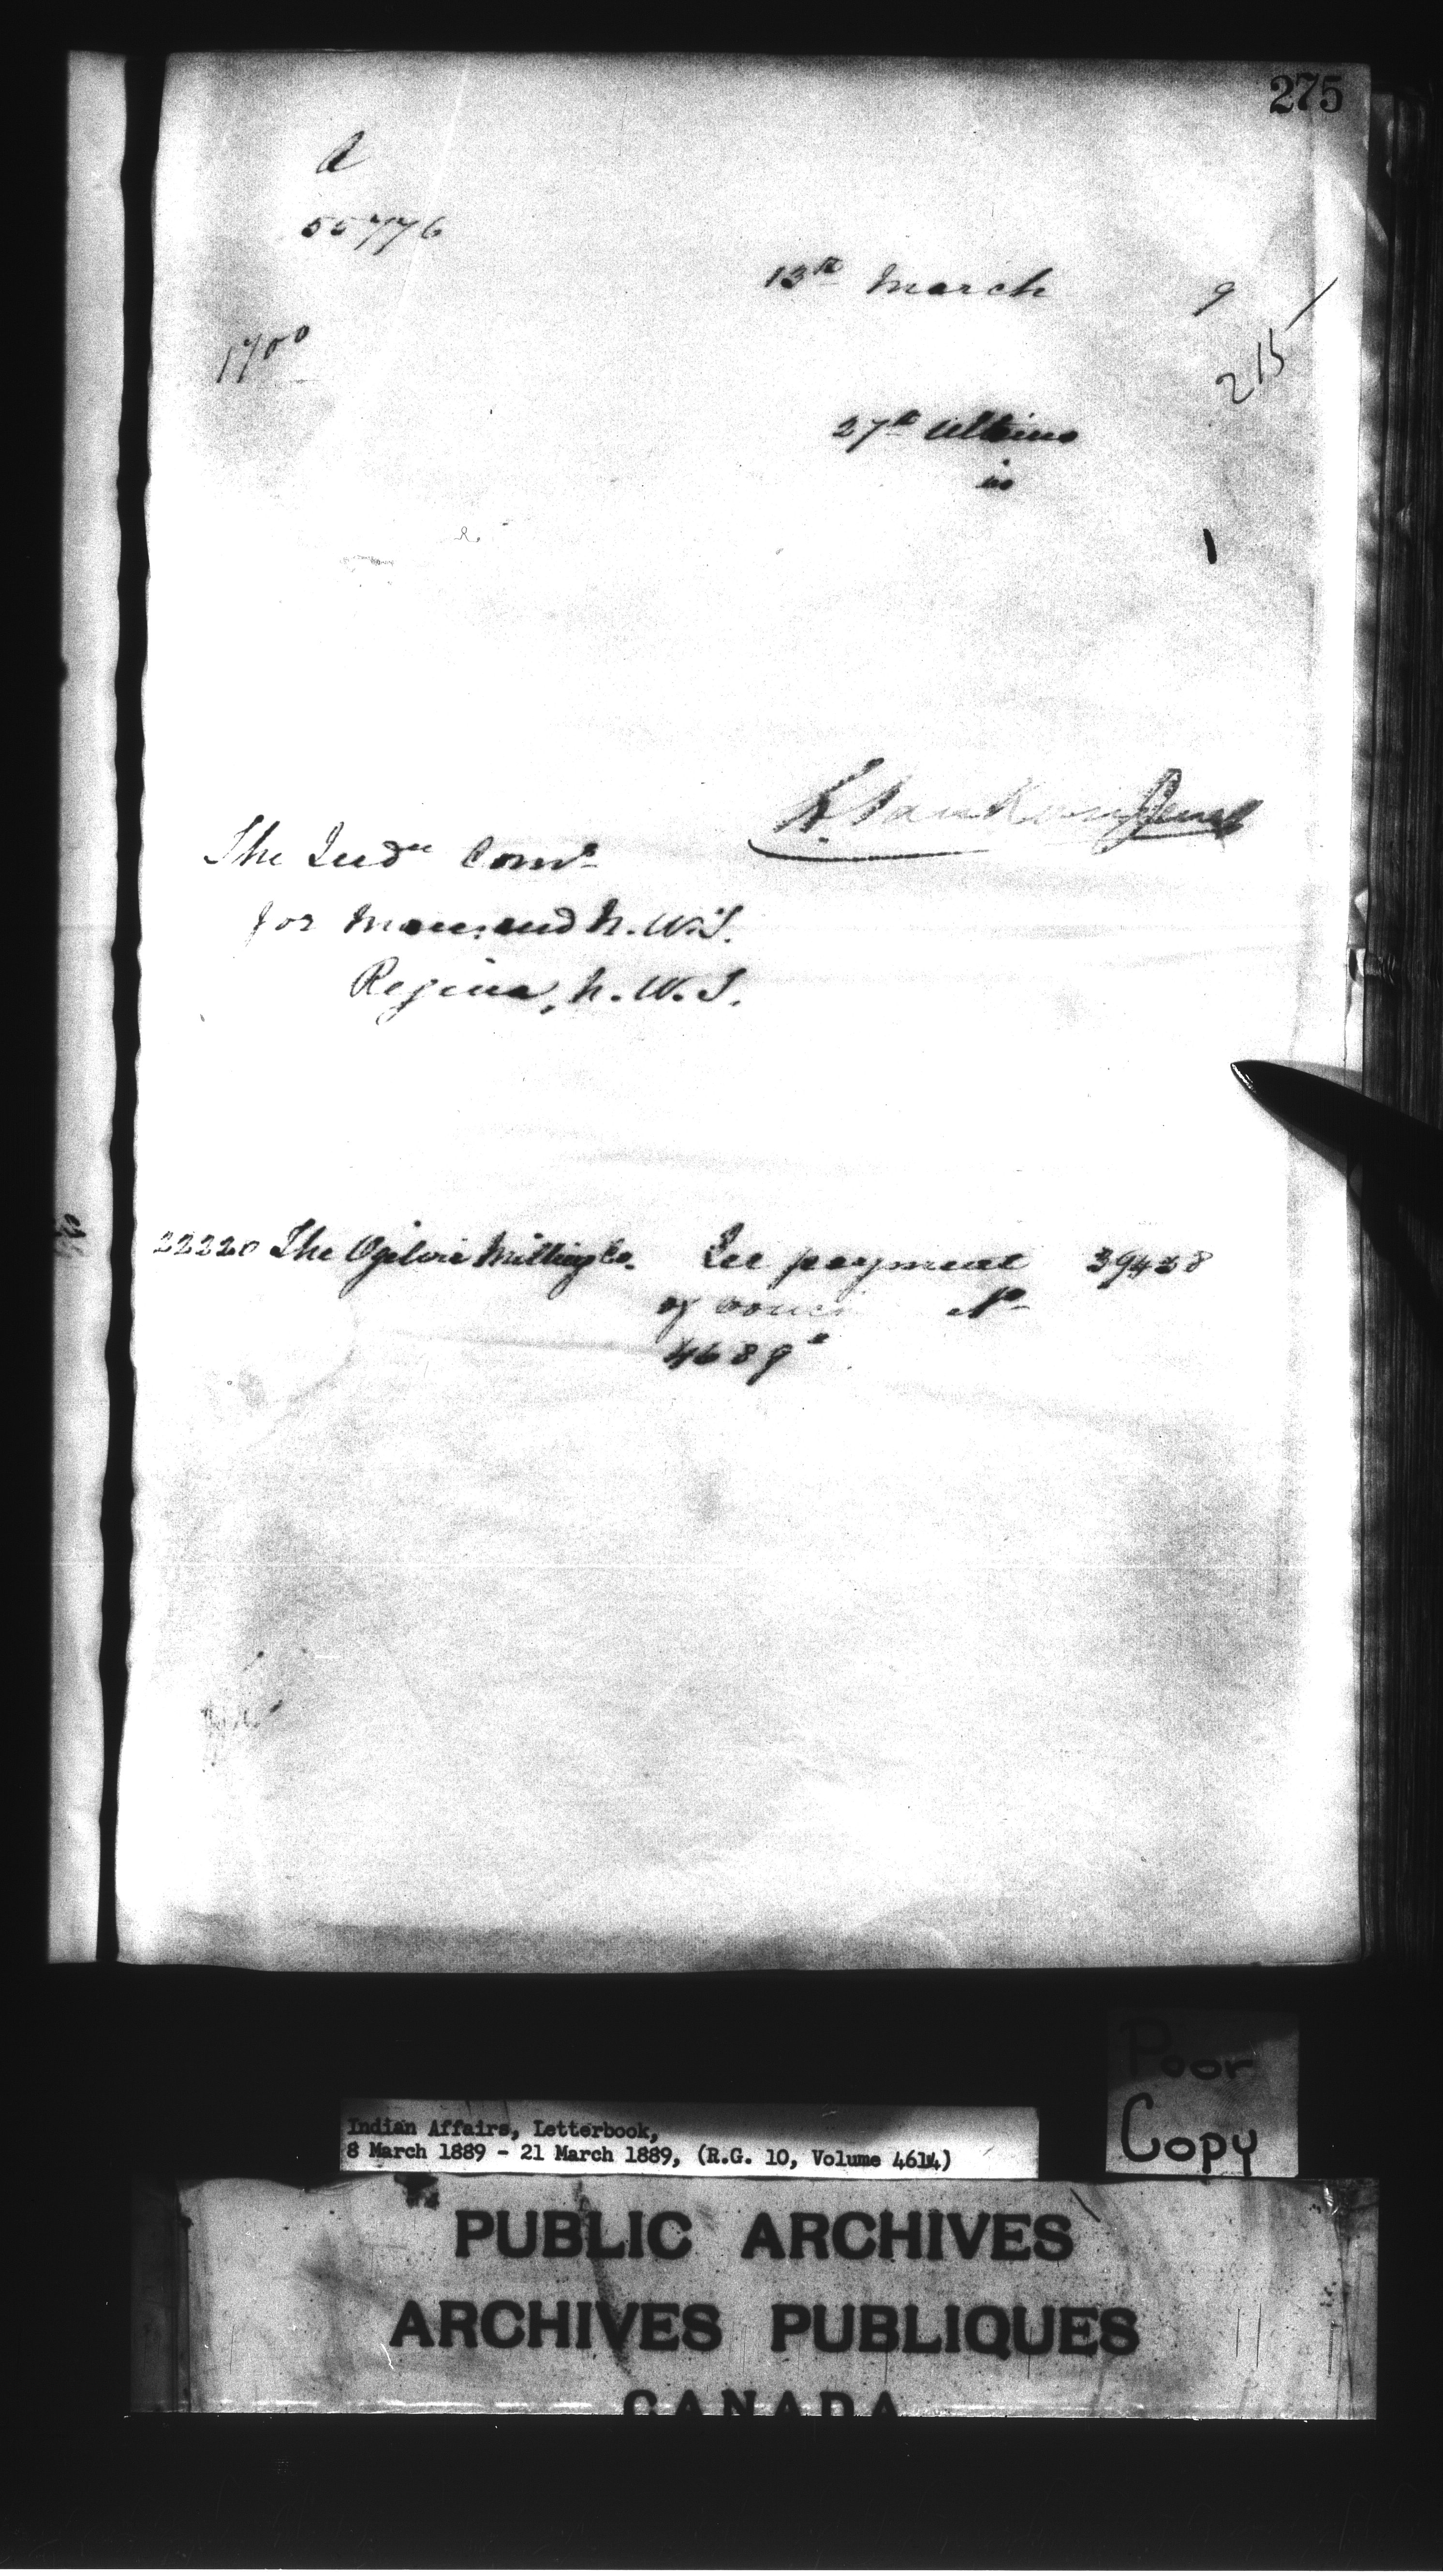 275
A
55776
13th March 9
1700
215
27th Ultimo
is
1
L. Vankoughnet
The Indn Comr
for Man: and N.W.T.
Regina, N.W.T.
22220 The Ogilvie Milling Co. In payment 39438
of vouc No
4689
Poor
Copy
Indian Affairs, Letterbook,
8 March 1889 - 21 March 1889, (R.G. 10, Volume 4614)
PUBLIC ARCHIVES
ARCHIVES PUBLIQUES
CANADA